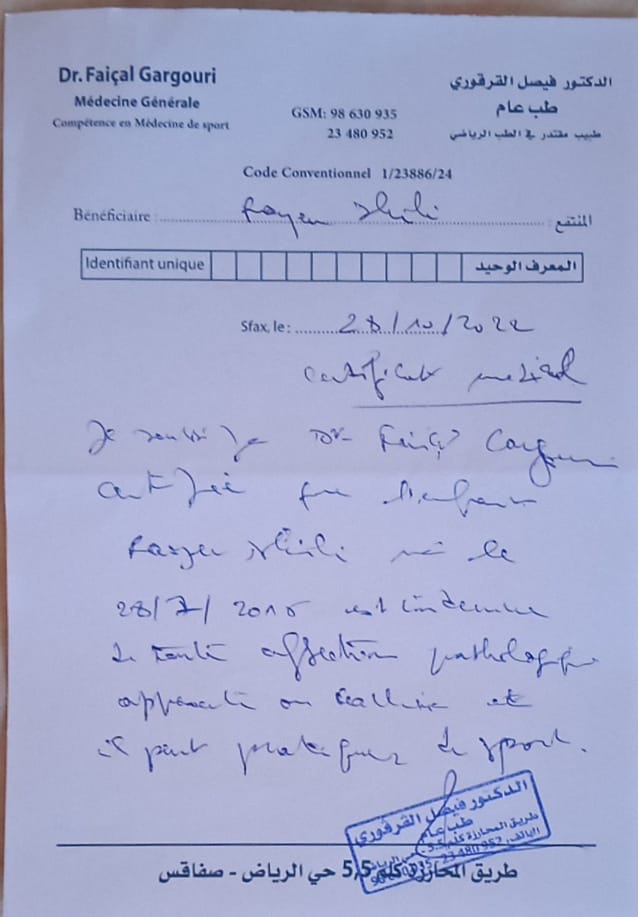 Dr. Faiçal Gargouri
Médecine Générale
Compétence en Médecine de sport
الدكتور فيصل القرقوري
طب عام
طبيب مقتدر في الطب الرياضي
GSM: 98 630 935
23 480 952
Code Conventionnel 1/23886/24
Bénéficiaire : Rayen المنتفع :
Identifiant unique المعرف الوحيد
Sfax, le : 28/10/2022
certificat medical
Je soussigne Dr Faiçal Gargouri
certifie que l'enfant
Rayen né le
28/7/ est indemne
de toute affection pathologique
apparente ou et
il peut pratiquer le sport.
الدكتور فيصل القرقوري
طب عام
طريق المحارزة كلم 5,5 حي الرياض
23 480 952
طريق المحارزة كلم 5,5 حي الرياض - صفاقس